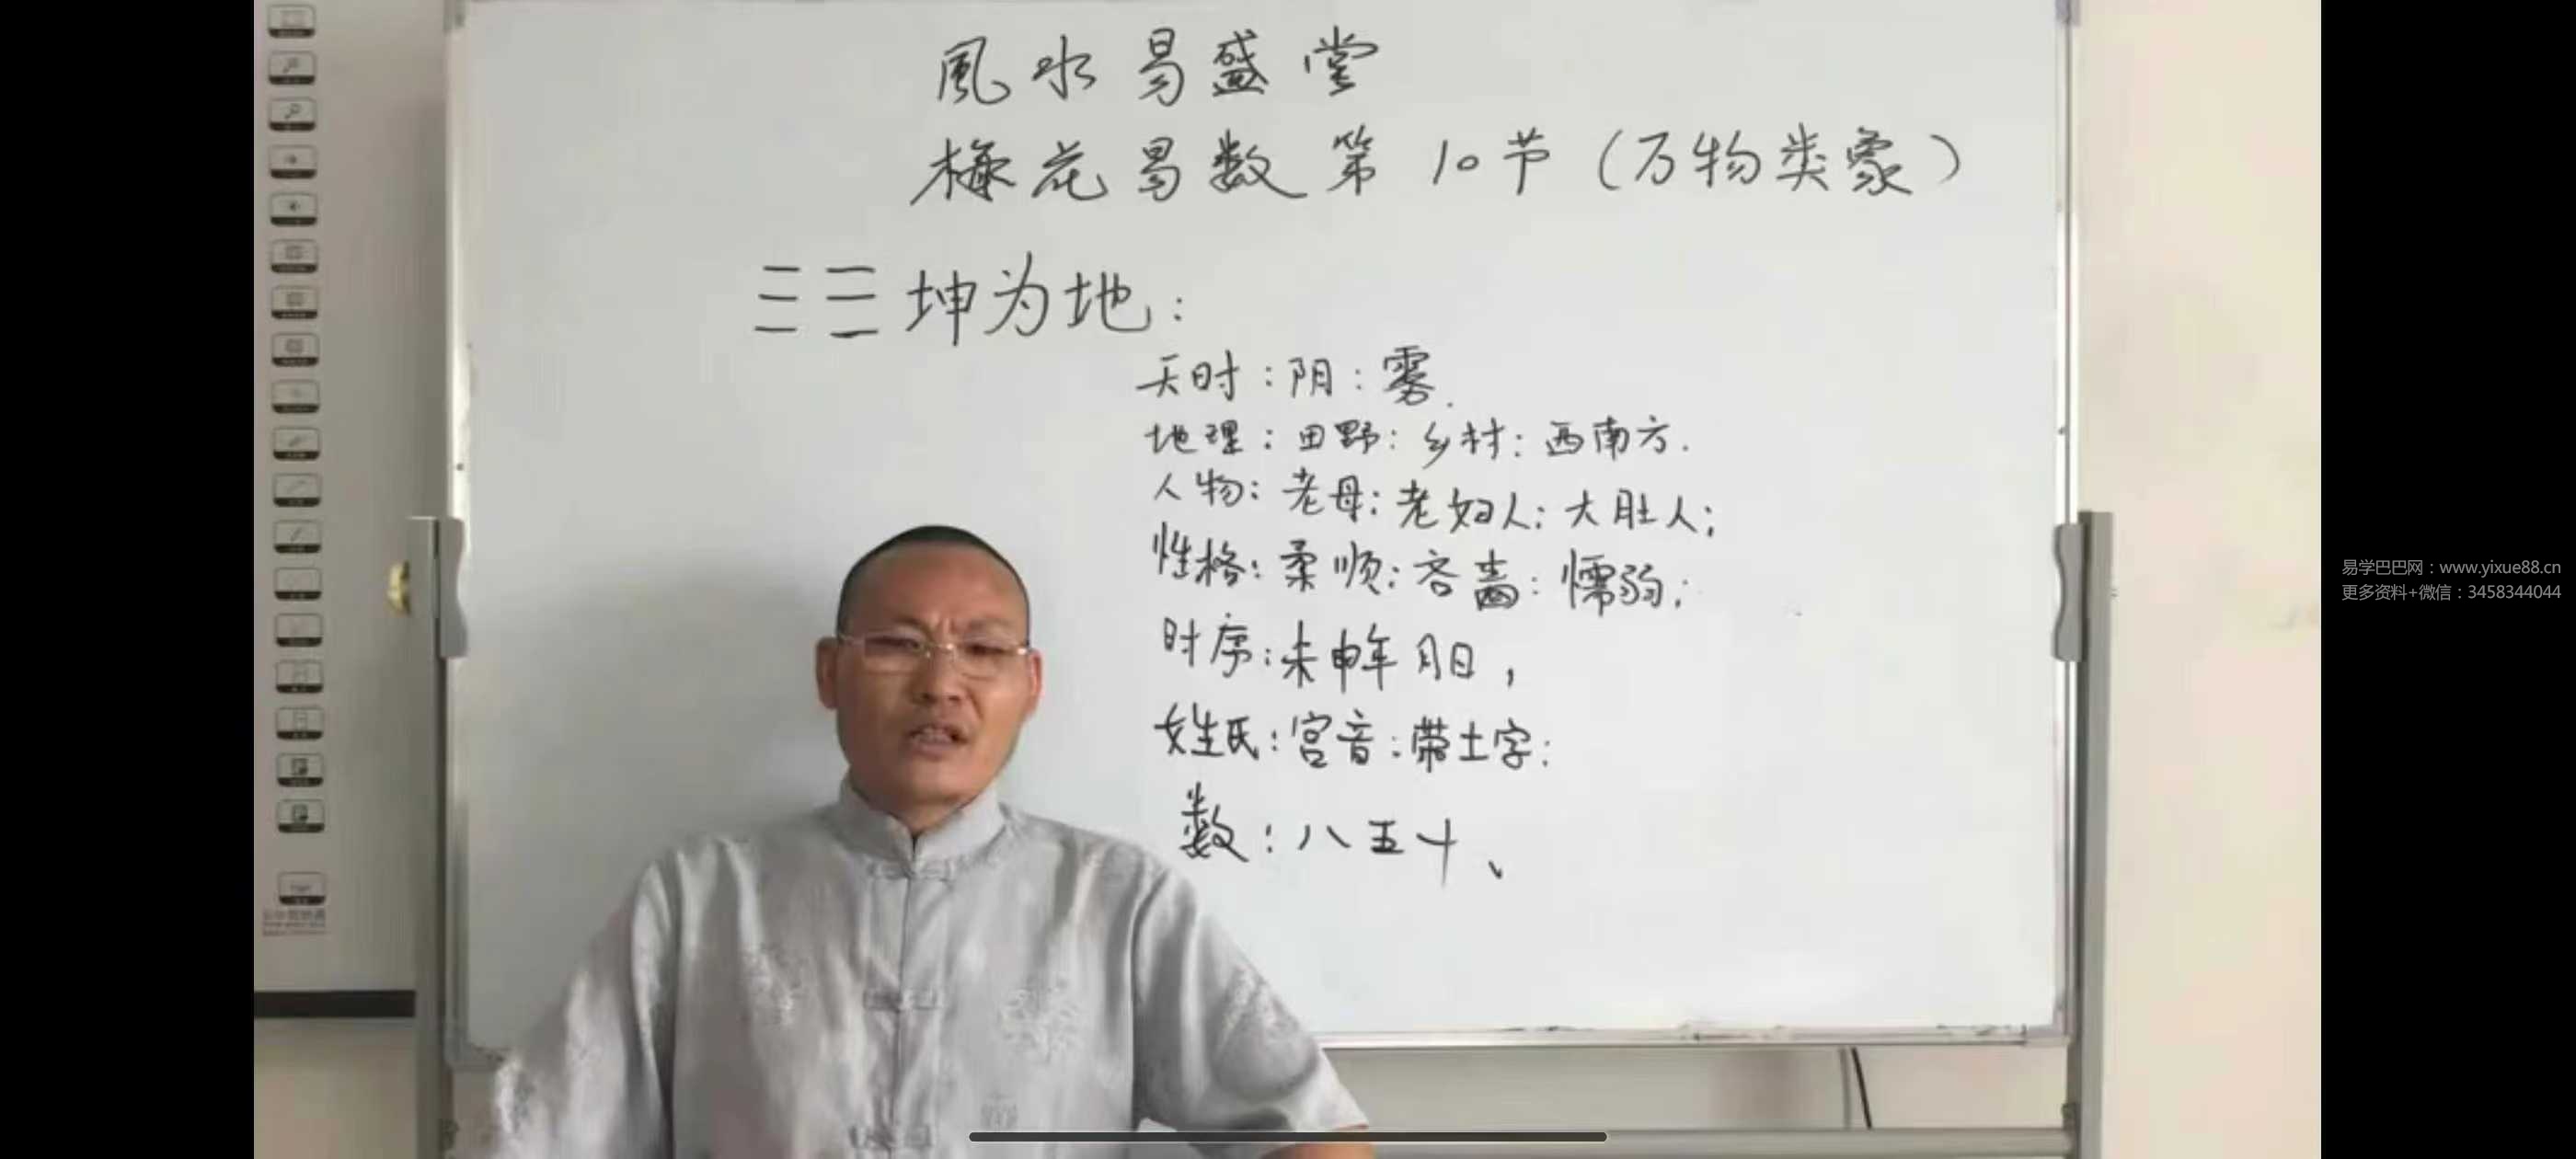 風水易盛堂
梅花易数第10节（万物类象）
☷坤为地：
天时：阴：雾.
地理：田野：乡村：西南方.
人物：老母：老妇人：大肚人；
性格：柔顺：吝啬：懦弱；
时序：未申年月日，
姓氏：宫音：带土字：
数：八五十、
易学巴巴网：www.yixue88.cn
更多资料+微信：3458344044